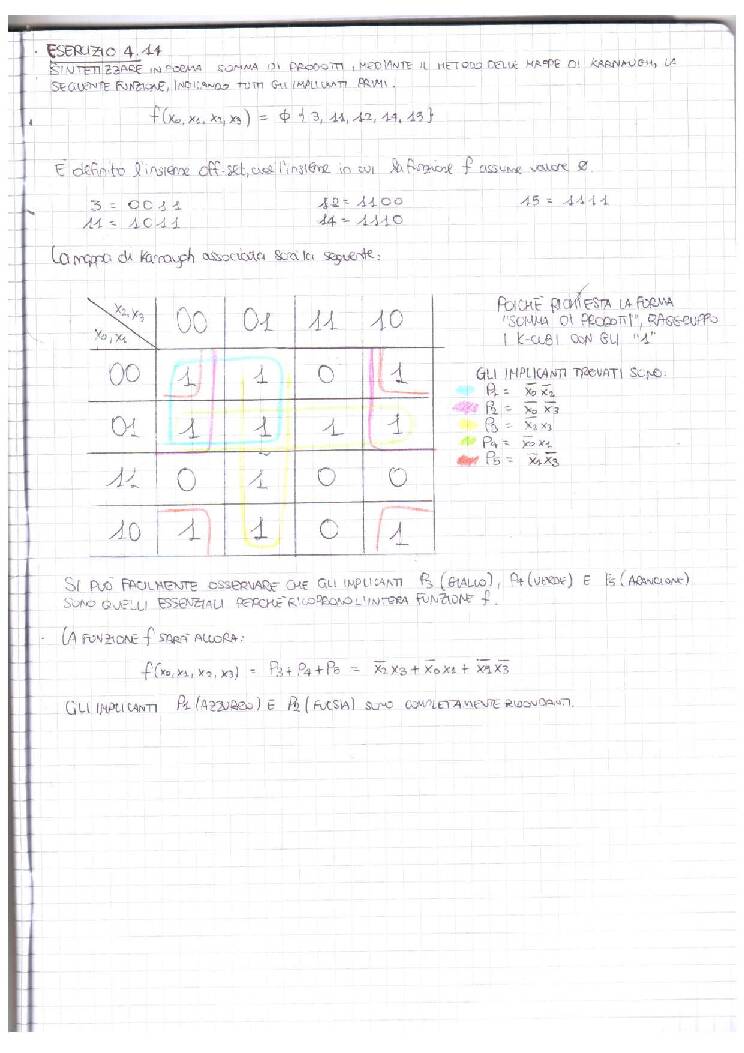 · ESERCIZIO 4.14
SINTETIZZARE IN FORMA SOMMA DI PRODOTTI, MEDIANTE IL METODO DELLE MAPPE DI KARNAUGH, LA
SEGUENTE FUNZIONE, INDICANDO TUTTI GLI IMPLICANTI PRIMI.
f(x0, x1, x2, x3) = Φ { 3, 11, 12, 14, 15 }
È definito l'insieme off-set, cioè l'insieme in cui la funzione f assume valore 0.
3 = 0011 12 = 1100 15 = 1111
11 = 1011 14 = 1110
La mappa di Karnaugh associata sarà la seguente:
x2,x3 00 01 11 10
x0,x1
00 1 1 0 1
01 1 1 1 1
11 0 1 0 0
10 1 1 0 1
POICHÈ RICHIESTA LA FORMA
"SOMMA DI PRODOTTI", RAGGRUPPO
I K-CUBI CON GLI "1"
GLI IMPLICANTI TROVATI SONO:
P1 = x̄0 x̄2
P2 = x̄0 x̄3
P3 = x̄2 x3
P4 = x̄0 x1
P5 = x̄1 x̄3
SI PUÒ FACILMENTE OSSERVARE CHE GLI IMPLICANTI P3 (GIALLO), P4 (VERDE) E P5 (ARANCIONE)
SONO QUELLI ESSENZIALI PERCHÈ RICOPRONO L'INTERA FUNZIONE f.
· LA FUNZIONE f SARÀ ALLORA:
f(x0, x1, x2, x3) = P3 + P4 + P5 = x̄2 x3 + x̄0 x1 + x̄1 x̄3
GLI IMPLICANTI P1 (AZZURRO) E P2 (FUCSIA) SONO COMPLETAMENTE RIDONDANTI.